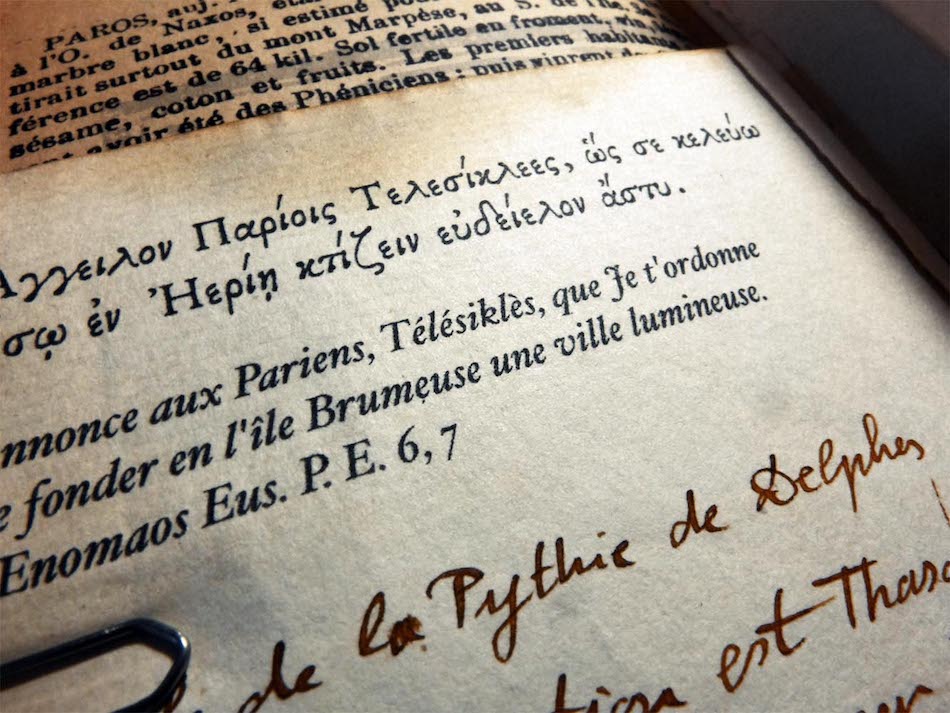 PAROS, auj.
à l'O. de Naxos,
marbre blanc, si estimé
tirait surtout du mont Marpèse, au S. de l'île.
férence est de 64 kil. Sol fertile en froment, vin,
sésame, coton et fruits. Les premiers habitants
avoir été des Phéniciens; puis vinrent
Ἄγγειλον Παρίοις Τελεσίκλεες, ὥς σε κελεύω
σῳ ἐν Ἠερίῃ κτίζειν εὐδείελον ἄστυ.
nnonce aux Pariens, Télésiklès, que Je t'ordonne
e fonder en l'île Brumeuse une ville lumineuse.
Enomaos Eus. P. E. 6, 7
de la Pythie de Delphes
tion est Thaso